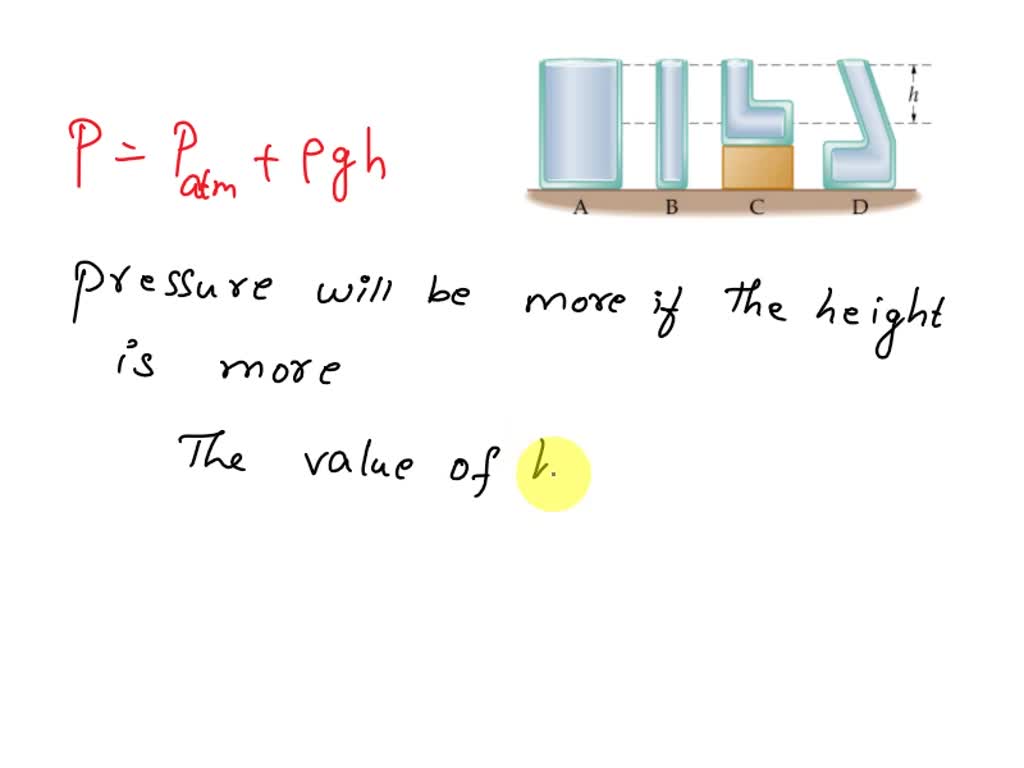 P = Patm + ρgh
h
A B C D
pressure will be more if the height
is more
The value of